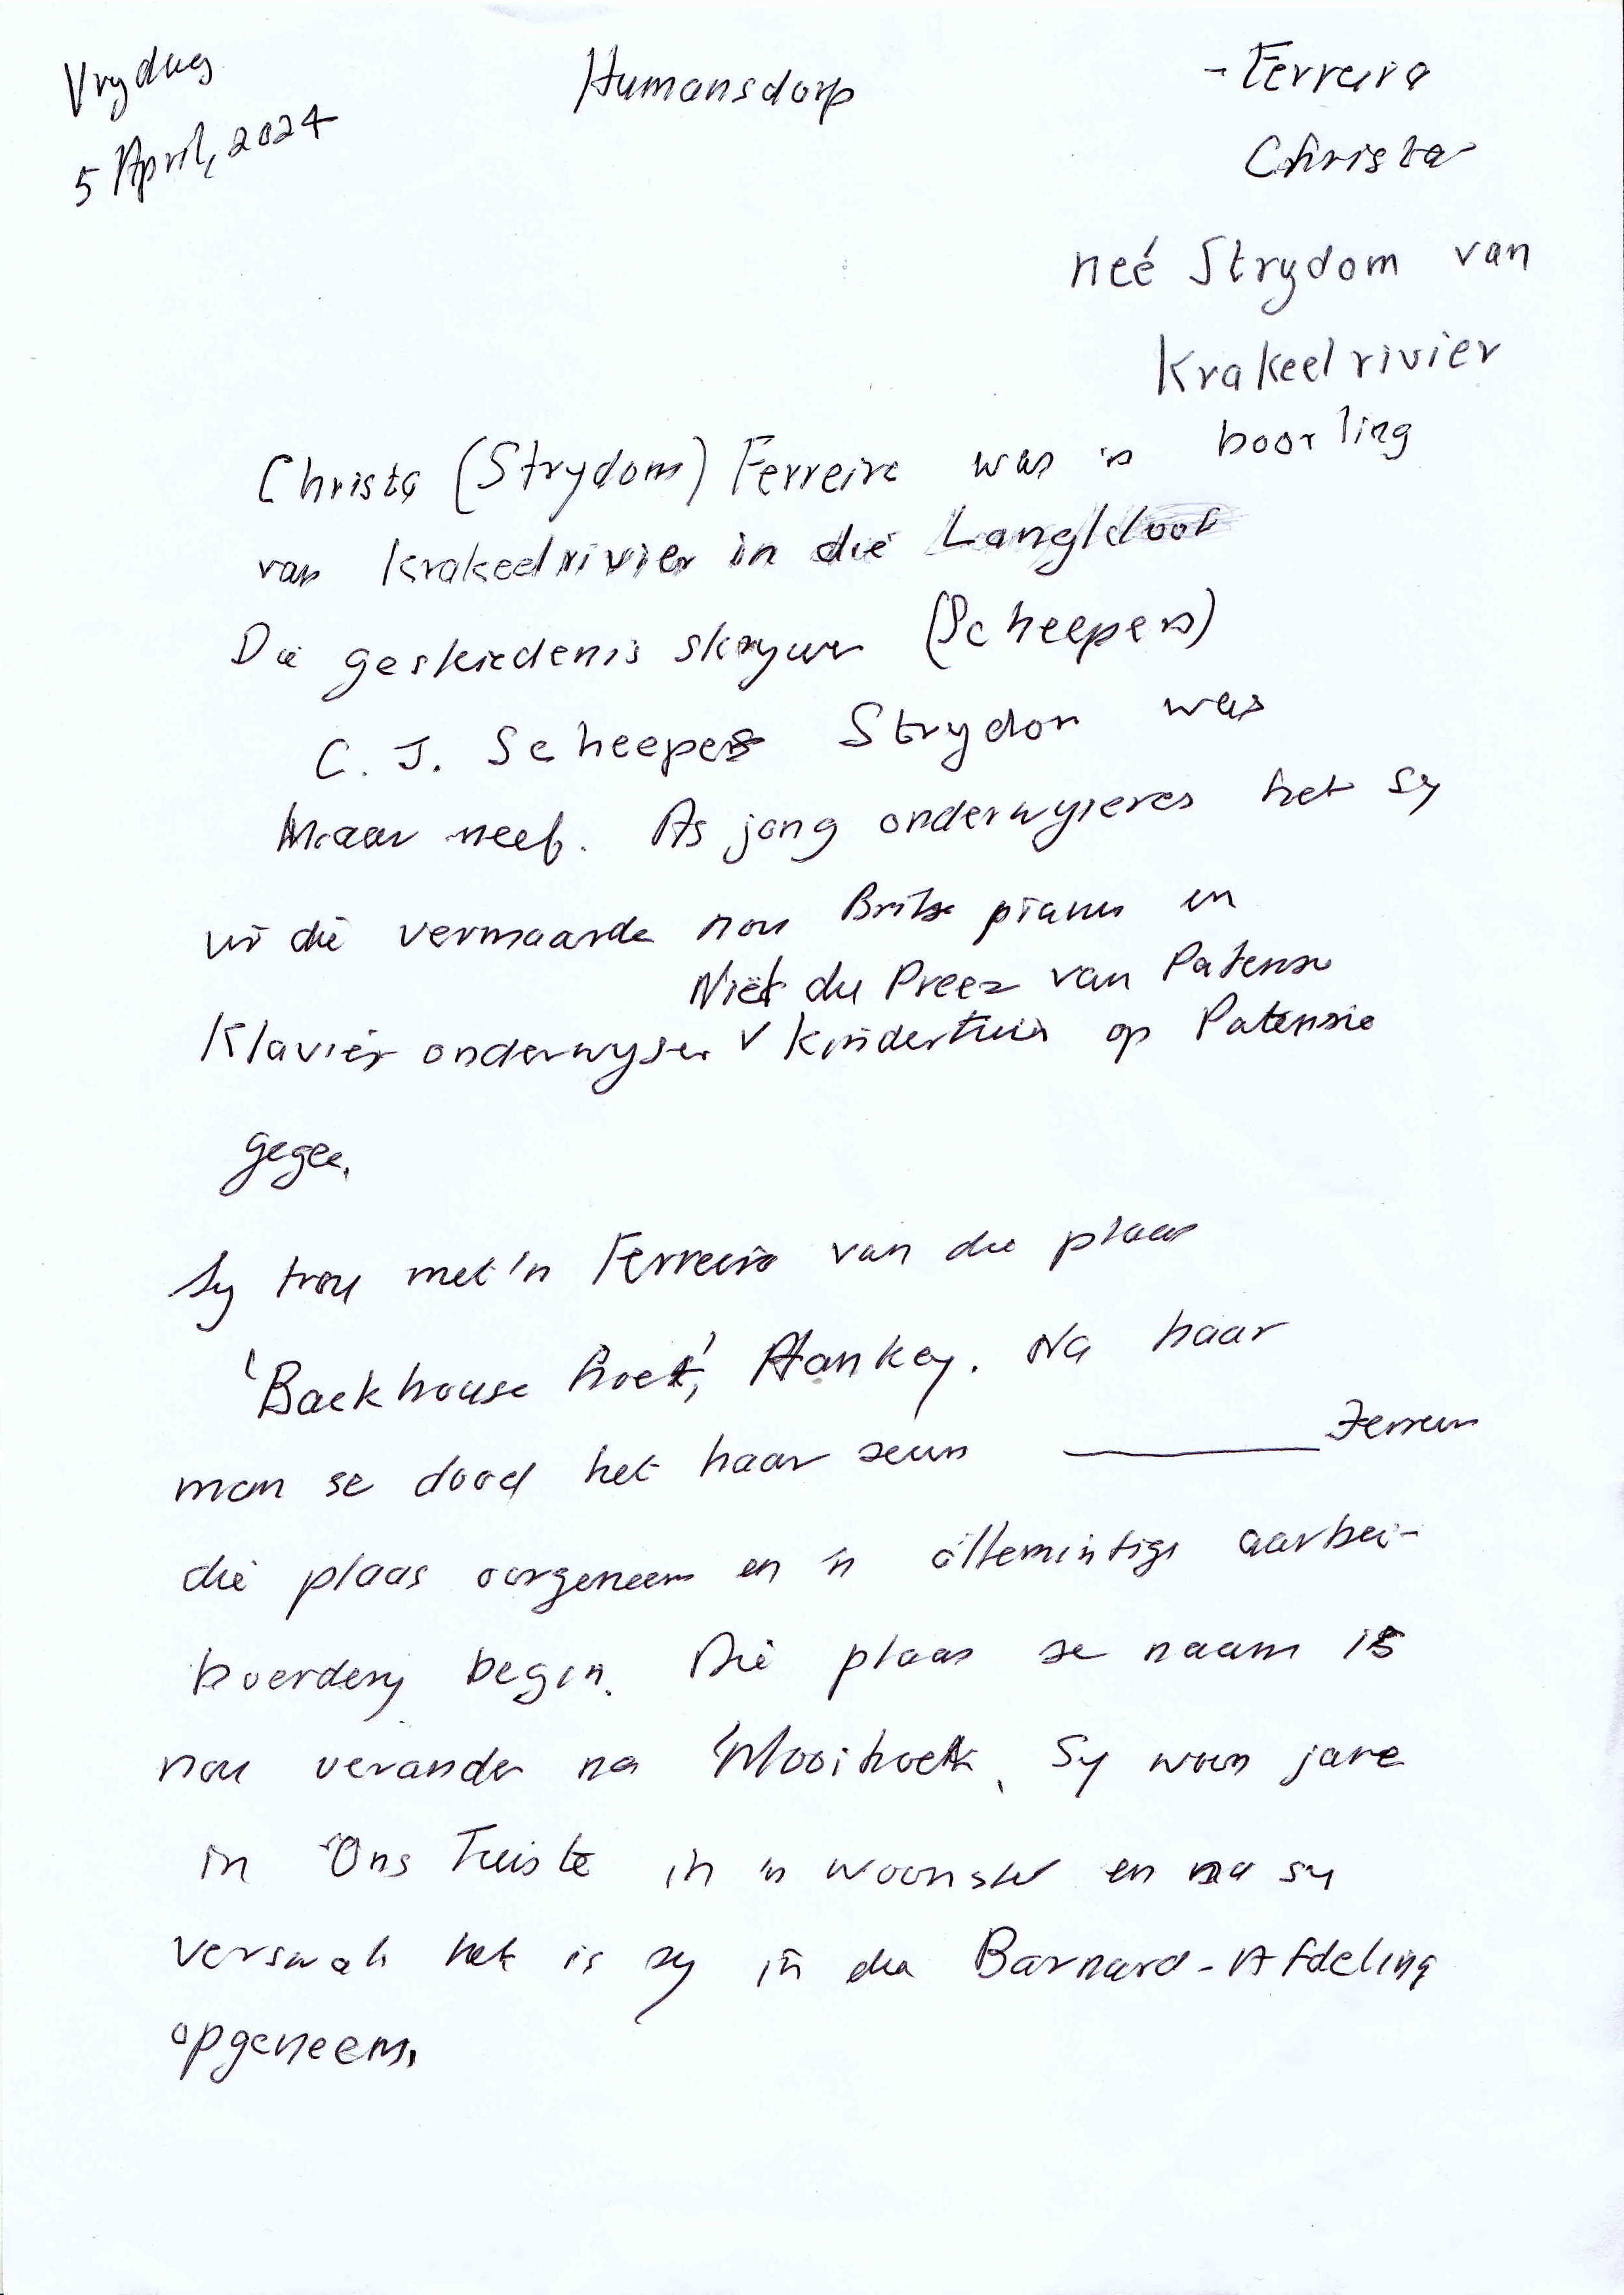 Vrydag
5 April, 2024
Humansdorp
- Ferreira
Christa
neé Strydom van
Krakeelrivier
Christa (Strydom) Ferreira was 'n boorling
van Krakeelrivier in die Langkloof
Die geskiedenis skrywer (Scheepers)
C. J. Scheepers Strydom was
haar neef. As jong onderwyseres het sy
vir die vermaarde nou Britse pianis en
Niël du Preez van Patensie
Klavier onderwyser v kindertuin op Patensie
gegee.
Sy trou met 'n Ferreira van die plaas
'Backhouse hoek', Hankey. Na haar
man se dood het haar seun ________ Ferreira
die plaas oorgeneem en 'n allemintige aarbei-
boerdery begin. Die plaas se naam is
nou verander na 'Mooihoek. Sy woon jare
in 'Ons Tuiste in 'n woonstel en na sy
verswak het is sy in die Barnard-Afdeling
opgeneem.